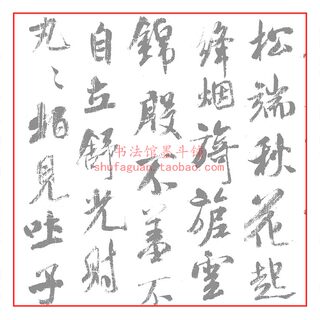 松端秋花起
絳烟旖旎雲
錦殷不羞不
自立舒光射
丸〻柏見吐子
书法馆墨斗铺
shufaguan.taobao.com